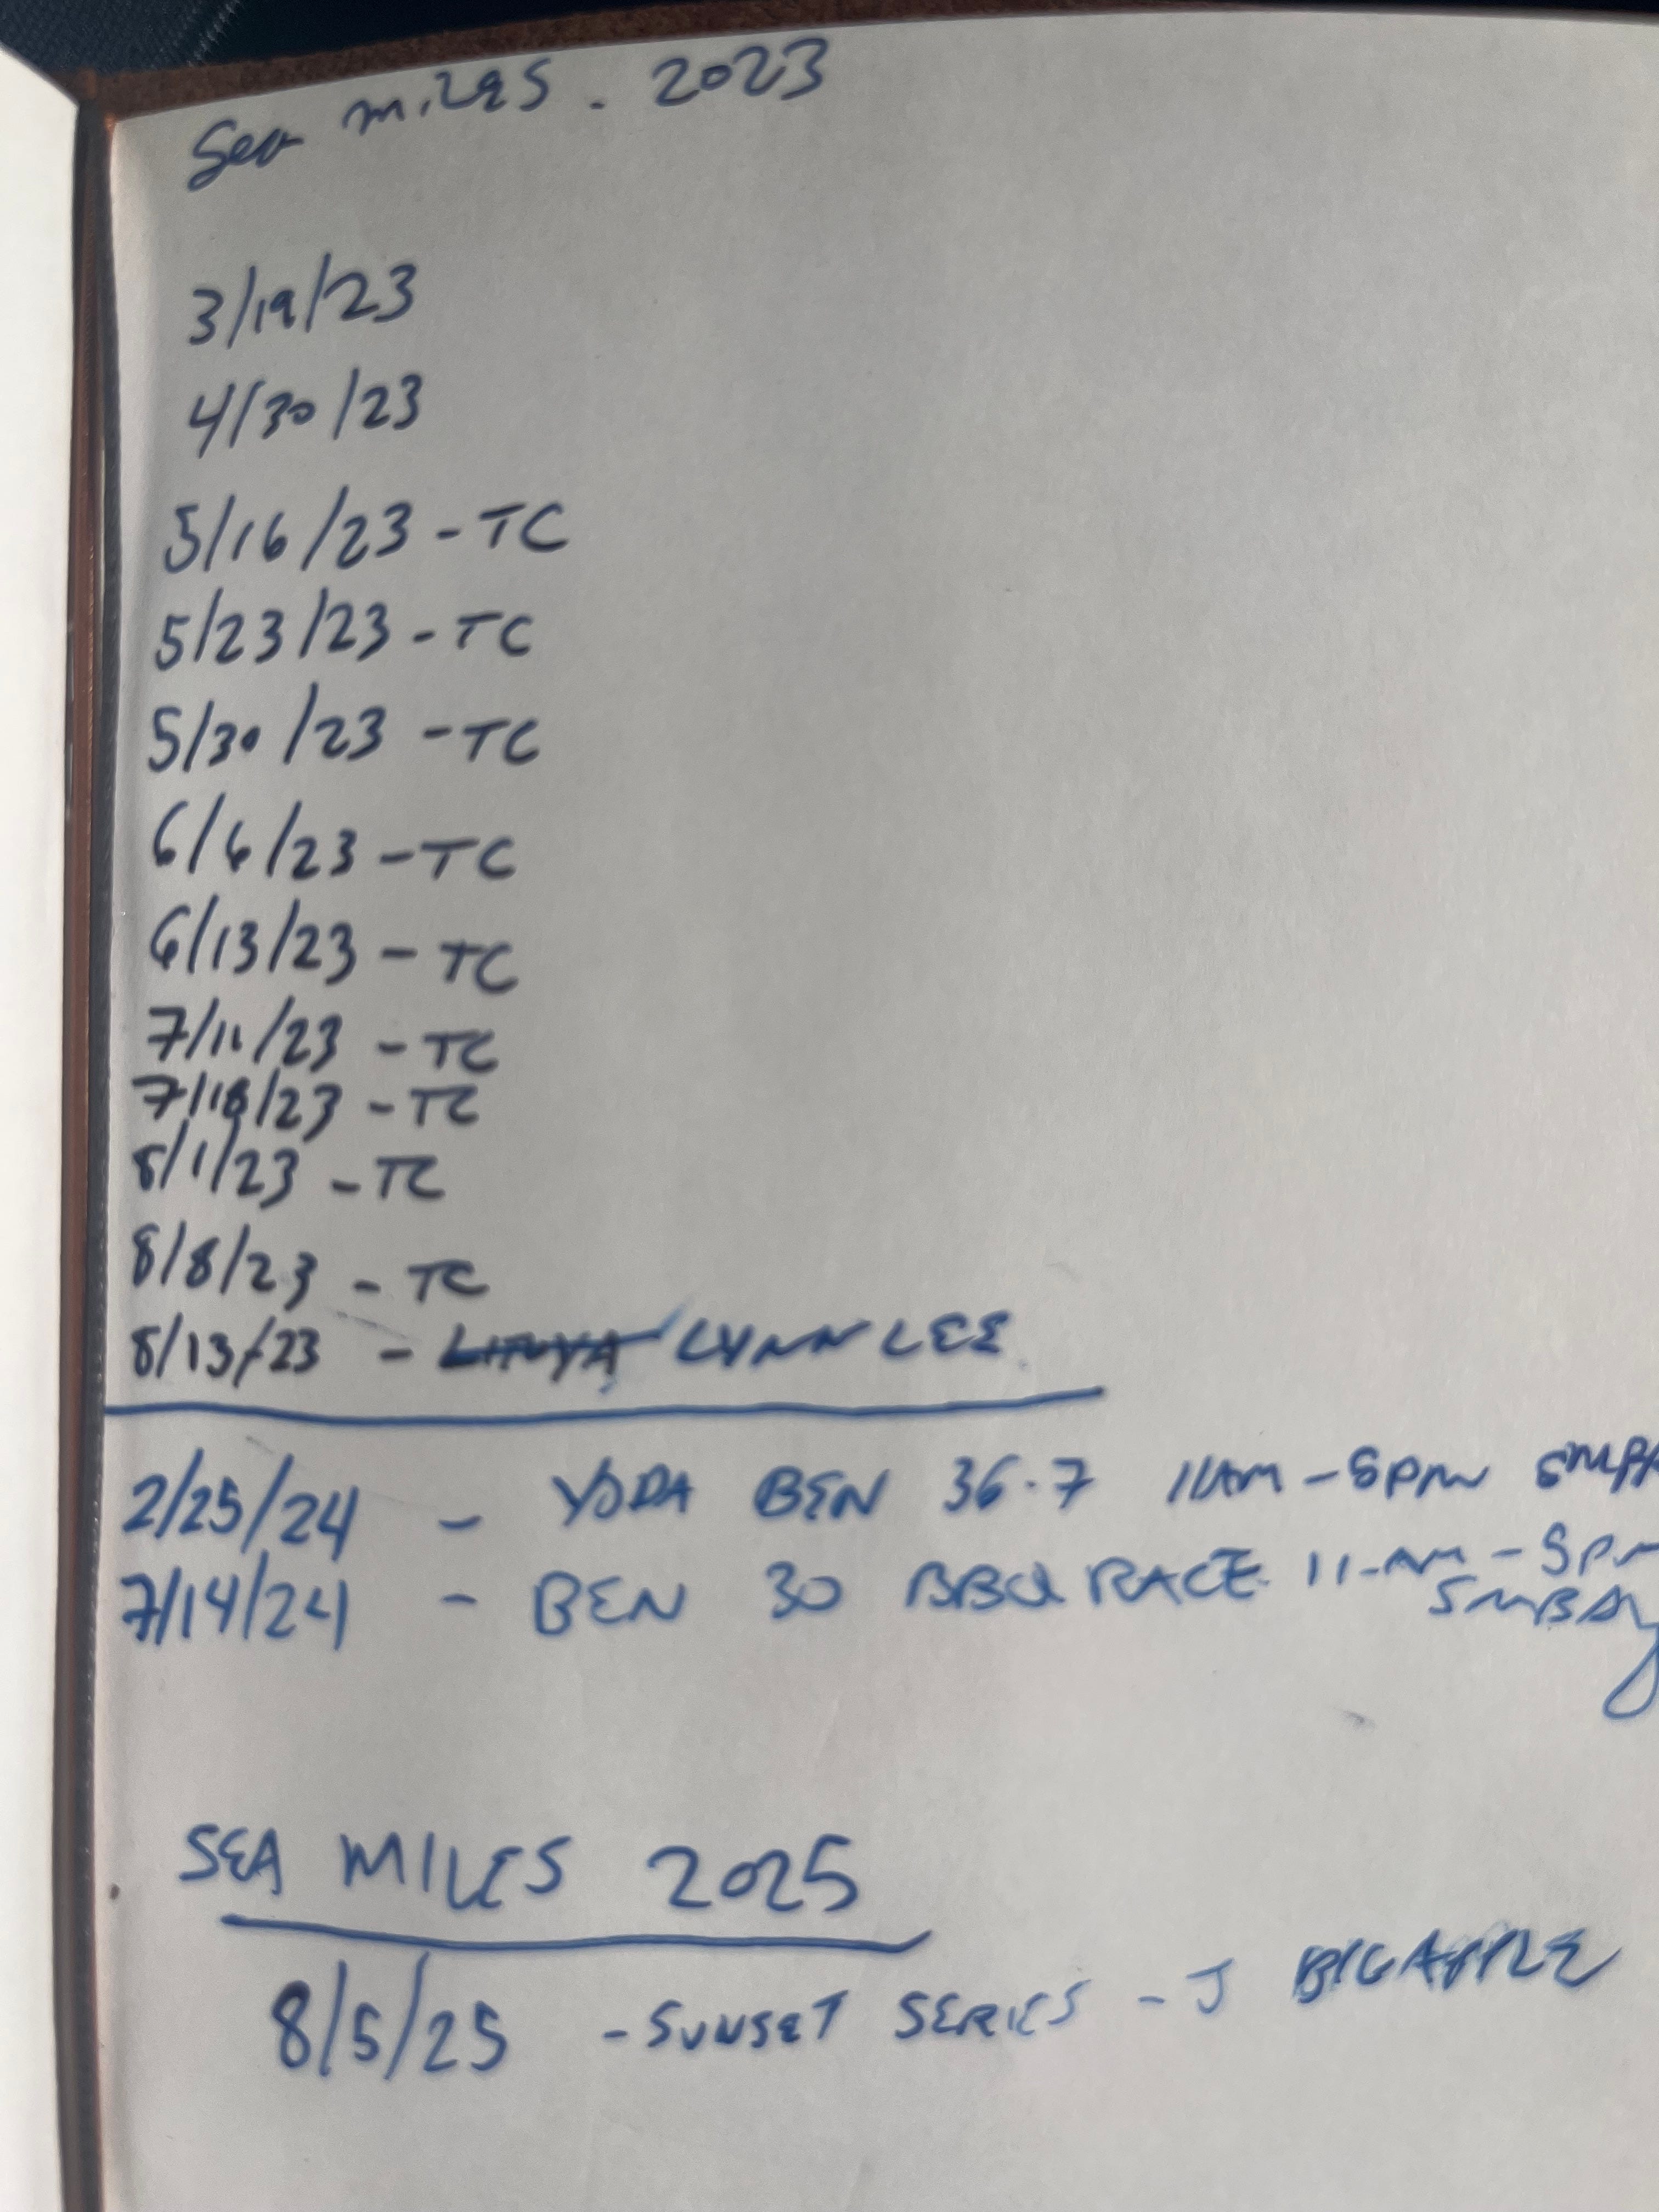 Sea miles. 2023
3/19/23
4/30/23
5/16/23 - TC
5/23/23 - TC
5/30/23 - TC
6/6/23 - TC
6/13/23 - TC
7/11/23 - TC
7/18/23 - TC
8/1/23 - TC
8/8/23 - TC
8/13/23 - LYNN LEE
2/25/24 - YODA BEN 36.7 11AM - 5PM
7/14/24 - BEN 30 BBQ RACE 11-AM - 5PM
SMBAY
SEA MILES 2025
8/5/25 - SUNSET SERIES - J BIG APPLE